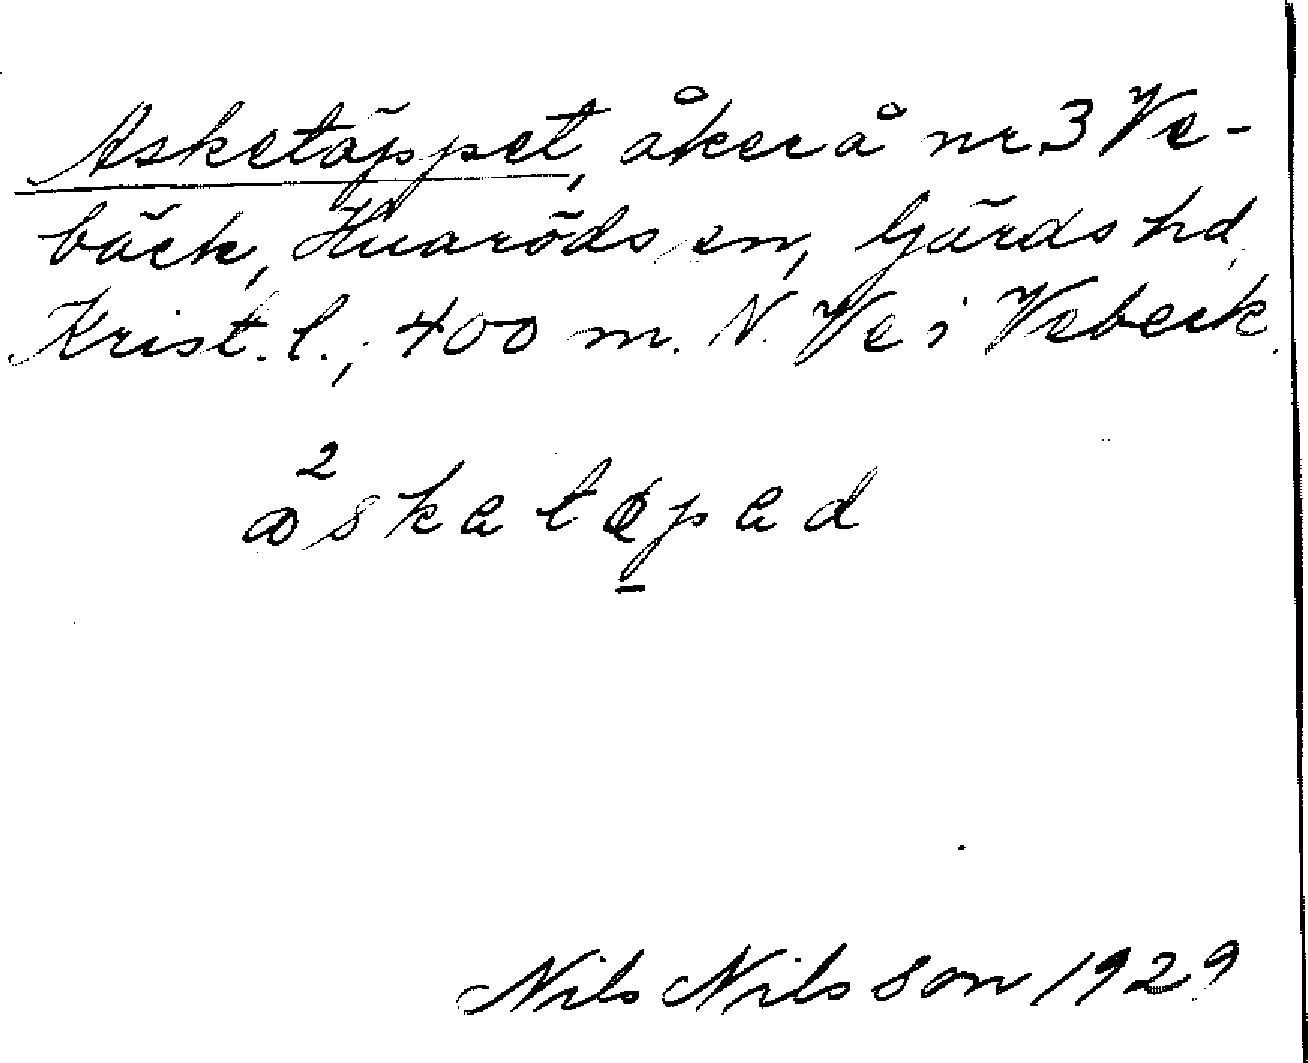 Asketäppet, åker å nr 3 Ve-
bäck, Huaröds sn, Gärds hd,
Krist. l., 400 m. N. Ve i Vebeck.
Nils Nilsson 1929